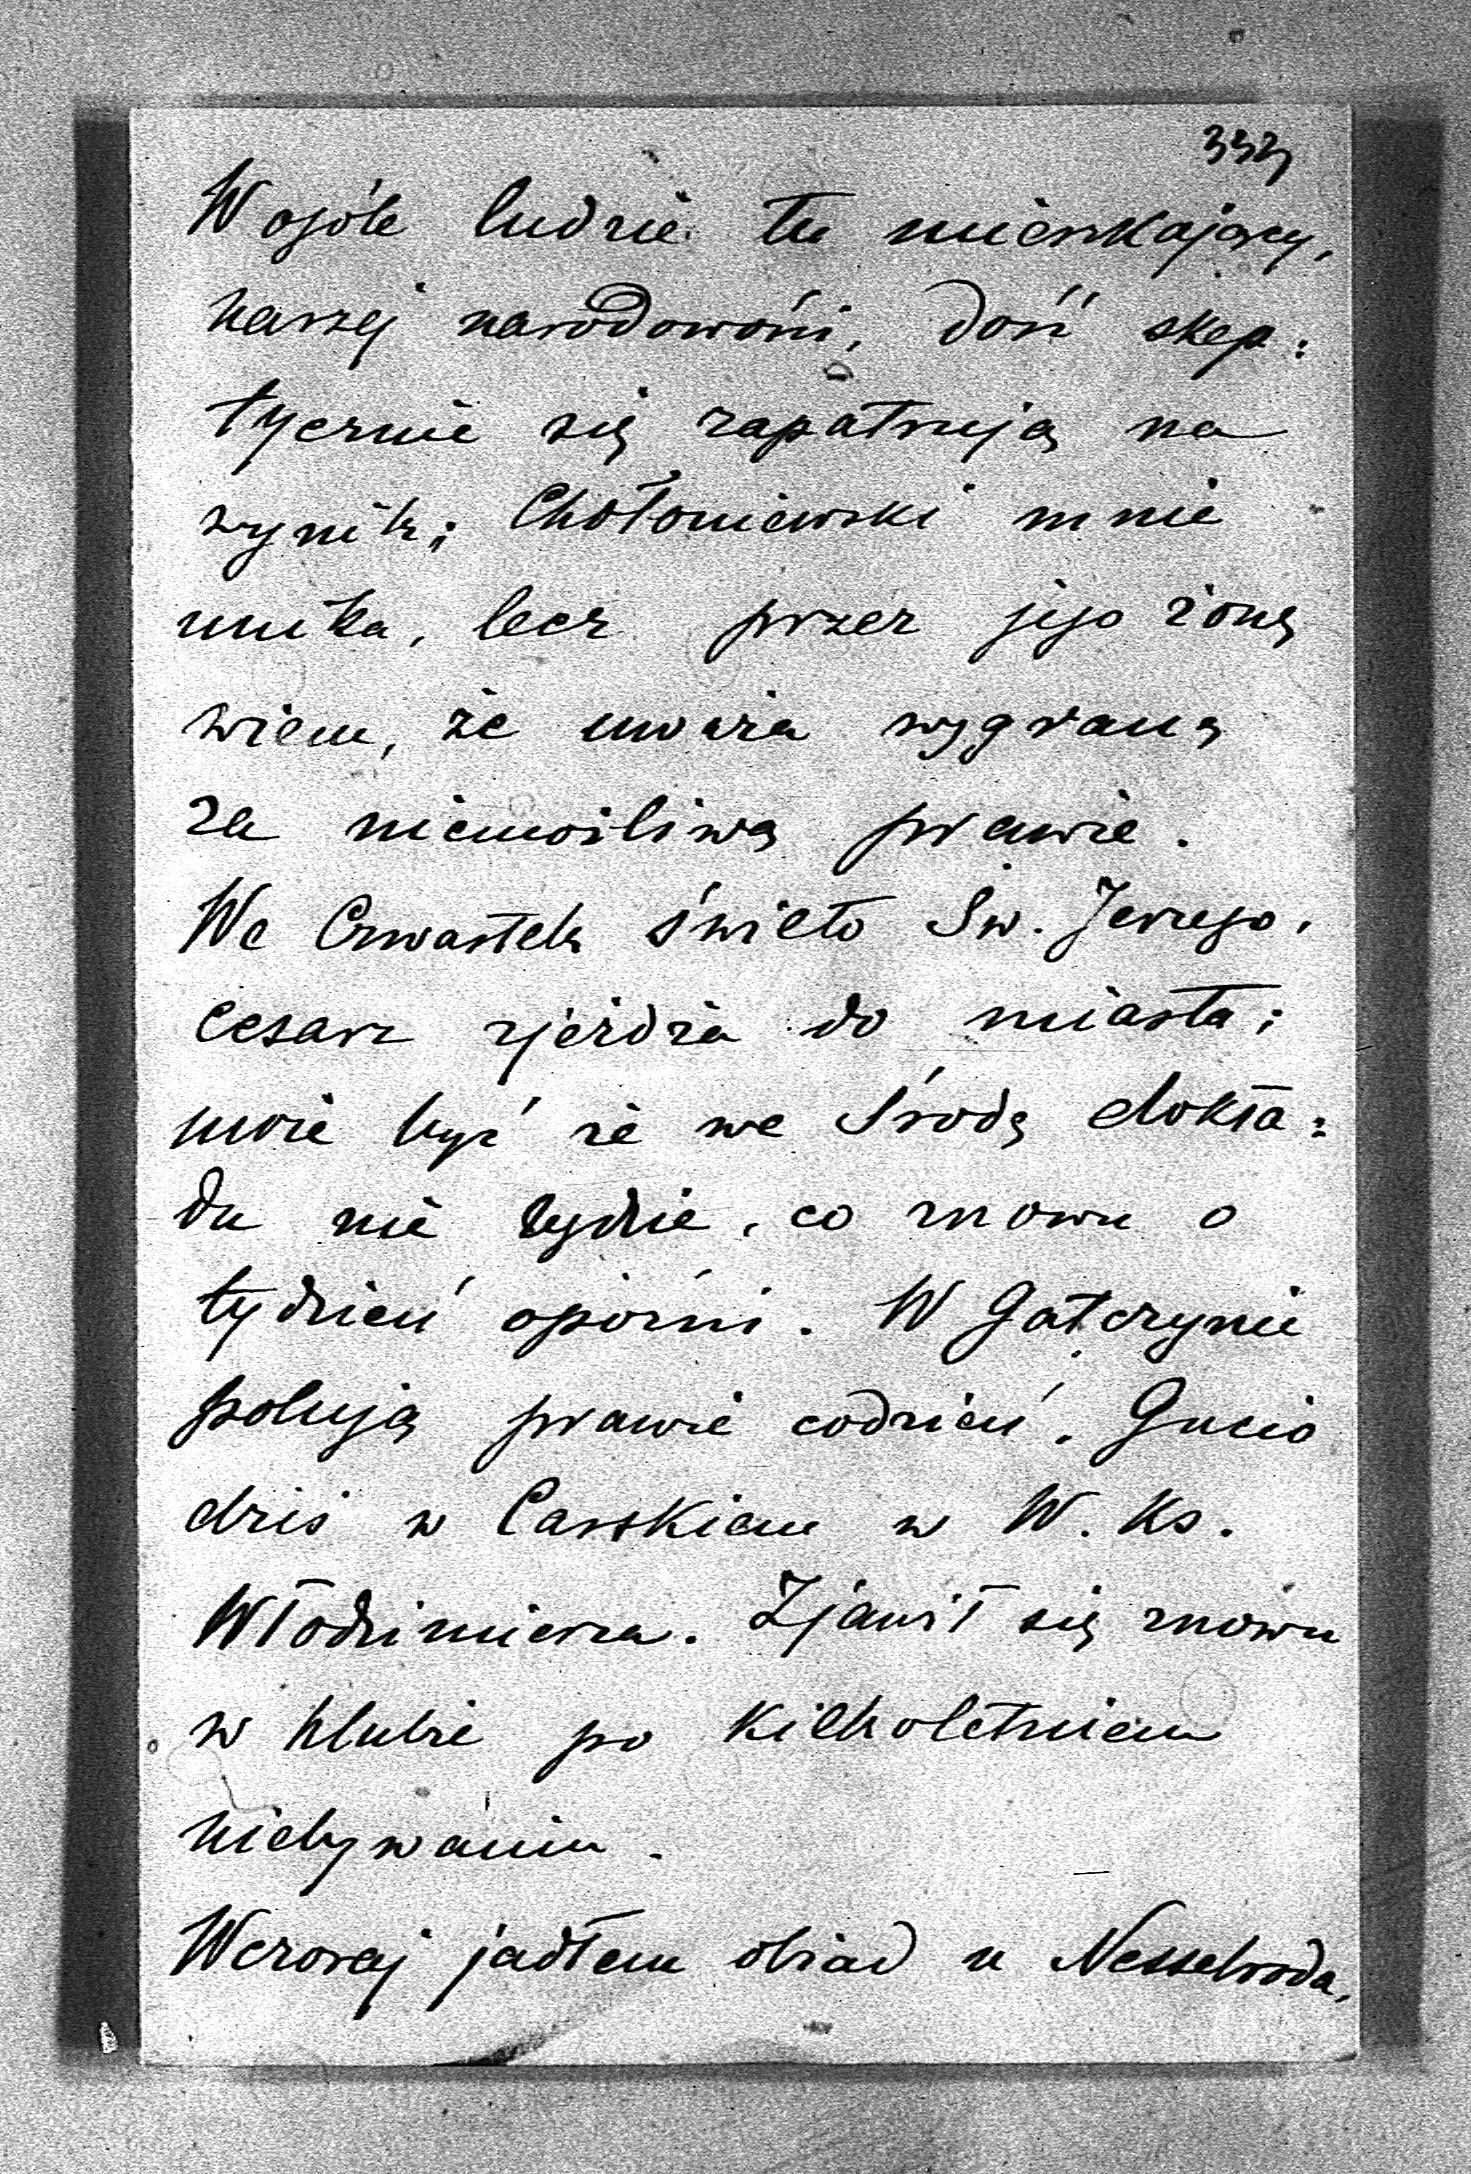 333
W ogóle ludzie tu mieszkający,
naszej narodowości, dość skep:
tycznie się zapatrują na
wynik; Chołoniewski mnie
unika, lecz przez jego żonę
wiem, że uważa wygraną
za niemożliwą prawie.
We Czwartek święto Św. Jerzego,
cesarz zjeżdża do miasta;
może być że we Środę dokła:
du nie będzie, co znowu o
tydzień opóźni. W Gatczynie
polują prawie codzień. Gucio
dziś w Carskiem u W. Ks.
Włodzimierza. Zjawił się znowu
w klubie po kilkoletniem
niebywaniu.
Wczoraj jadłem obiad u Nesselroda,